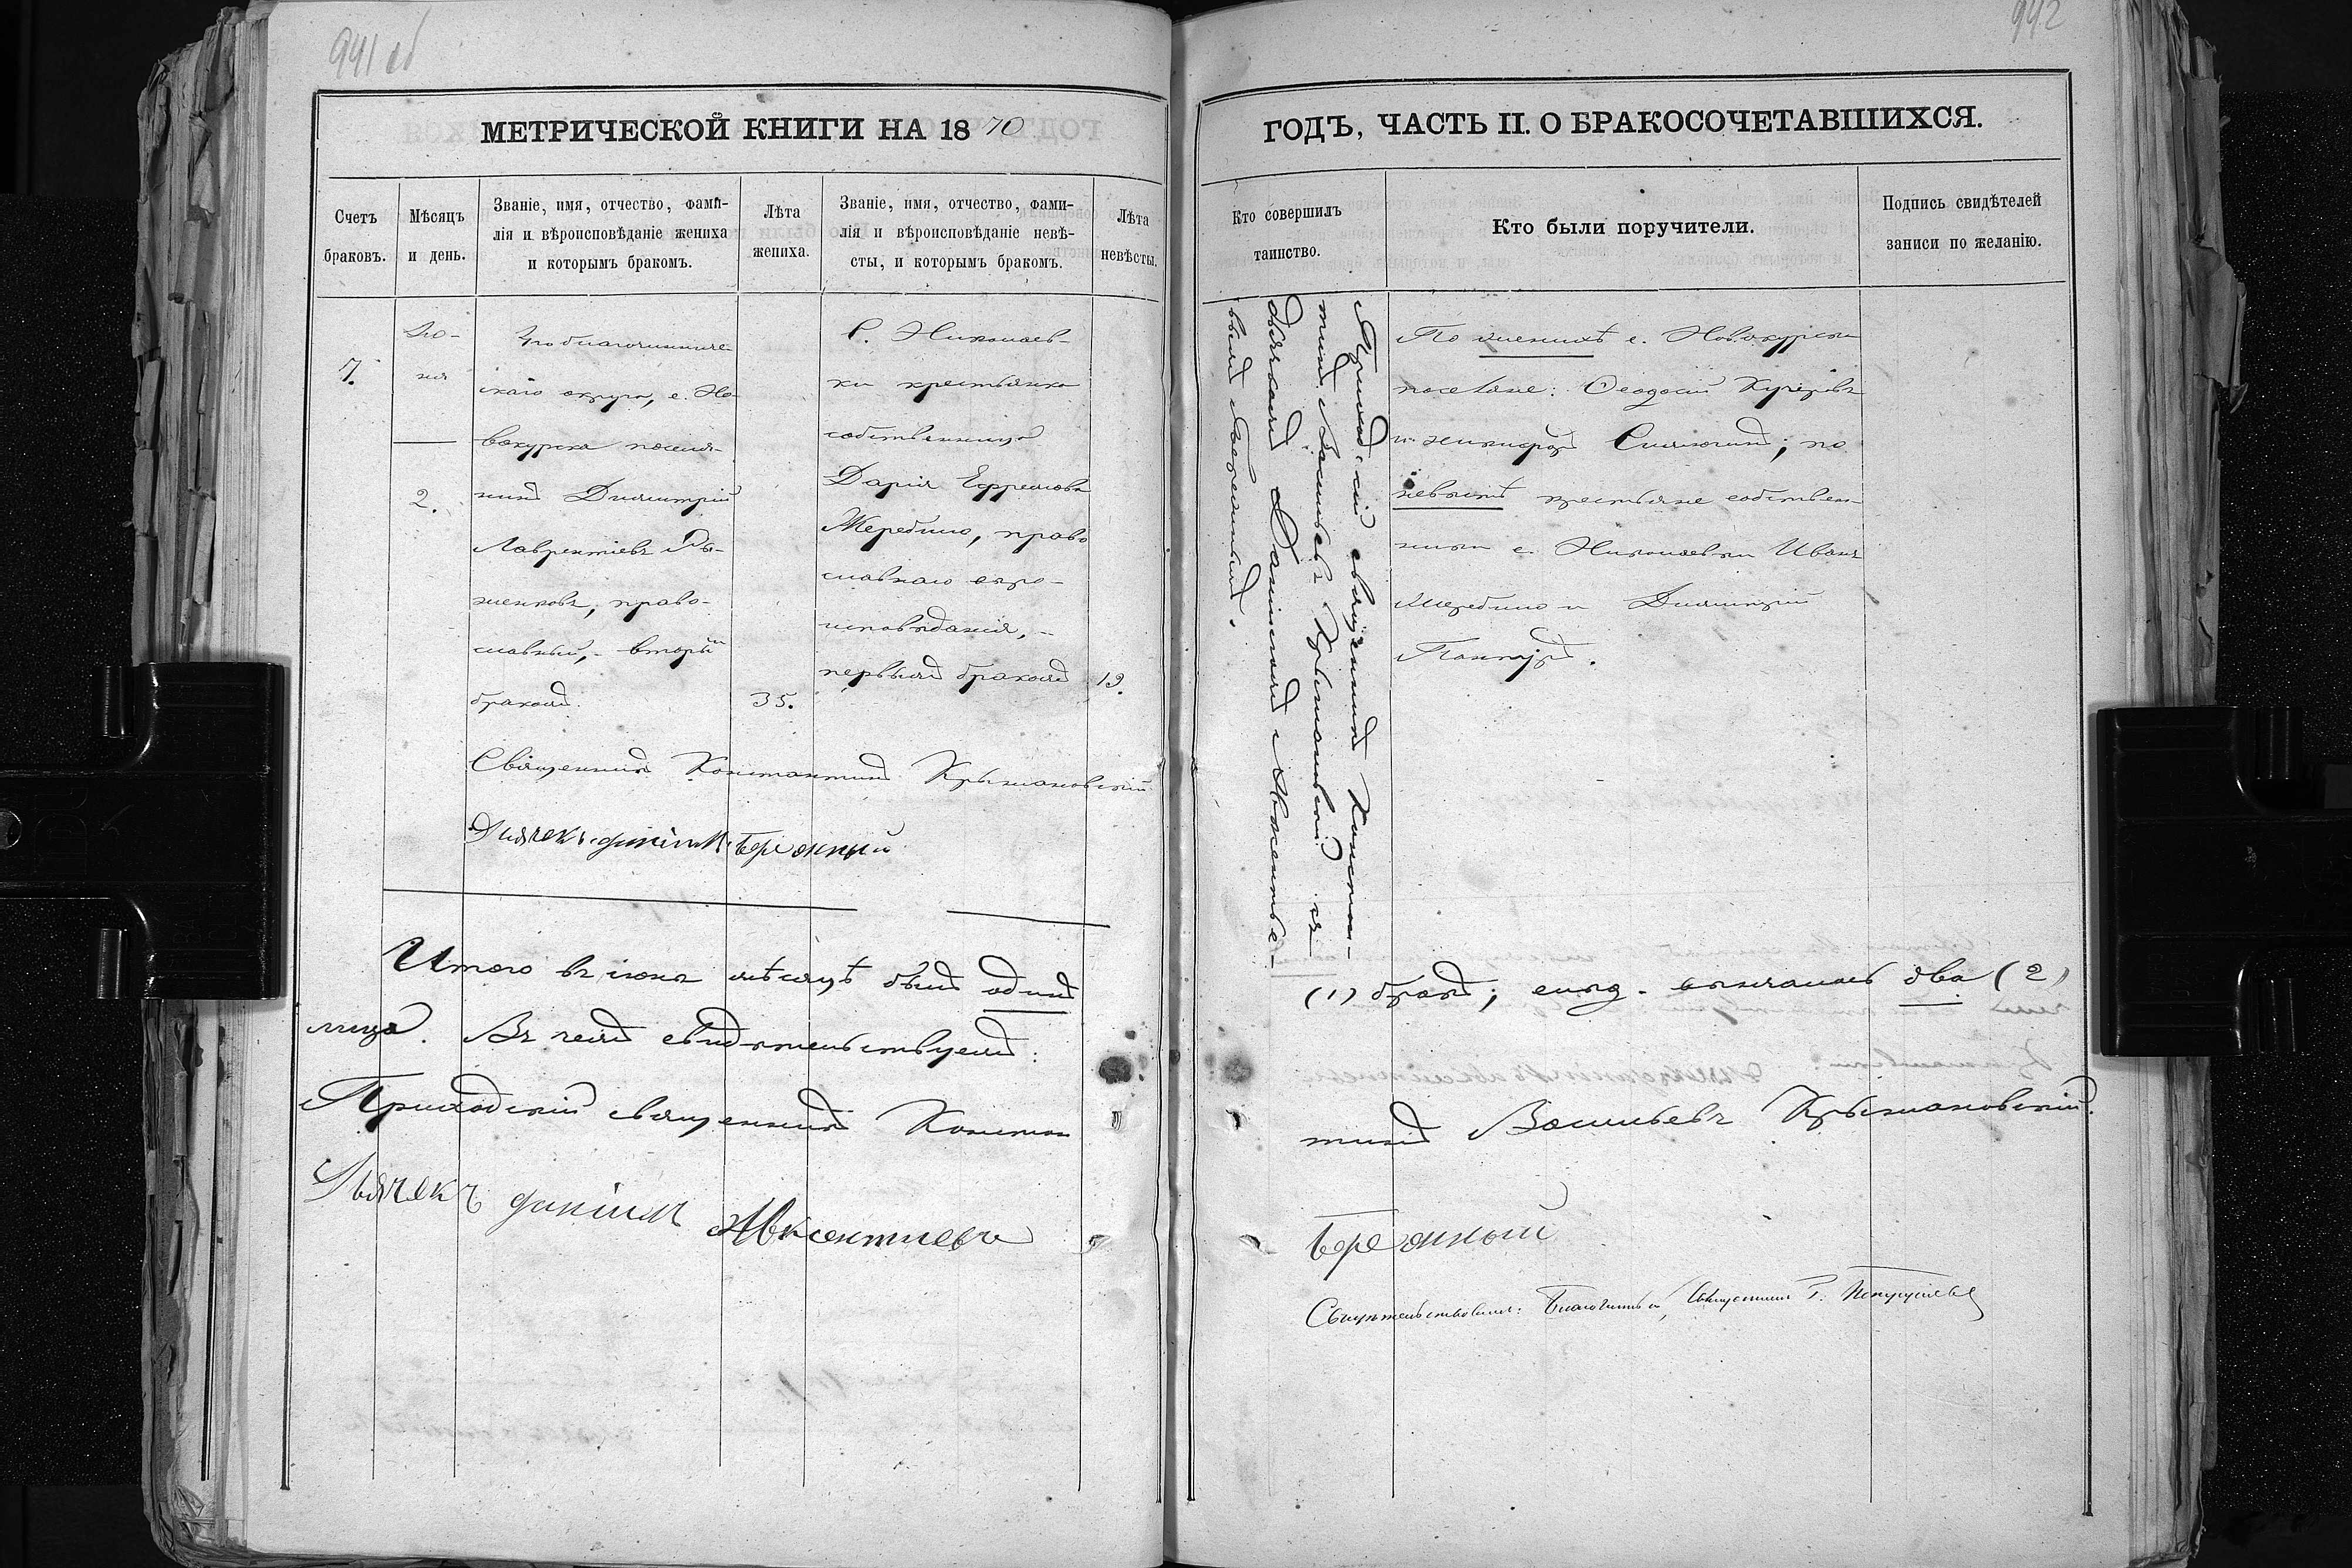 941 об
942
МЕТРИЧЕСКОЙ КНИГИ НА 1870
ГОДЪ, ЧАСТЬ II. О БРАКОСОЧЕТАВШИХСЯ.
Счетъ
браковъ.
Мѣсяцъ
и день.
Званіе, имя, отчество, фами-
лія и вѣроисповѣданіе жениха
и которымъ бракомъ.
Лѣта
жениха.
Званіе, имя, отчество, фами-
лія и вѣроисповѣданіе невѣ-
сты, и которымъ бракомъ.
Лѣта
невѣсты.
Кто совершилъ
таинство.
Кто были поручители.
Подпись свидѣтелей
записи по желанію.
7.
Ію-
ня
2.
благочинниче-
скаго округа, с. Но-
вокурска поселя-
нинъ Димитрій
Лаврентіевъ
женковъ, право-
славный, - вторымъ
бракомъ.
35.
С. Николаев-
ки крестьянка
собственница
Дарія Ефремова
Жеребило, право
славнаго веро-
исповѣданія, -
первымъ бракомъ
19.
Приходскій священникъ Констан-
тинъ Васильевъ Крыжановскій съ
дьячкомъ Даніиломъ Авксентье-
вымъ Бережнымъ.
По женихѣ с. Новокурска
поселяне: Ѳеодосій Кучеровъ
и Никифоръ; по
невѣстѣ крестьяне собствен-
ники с. Николаевки Иванъ
Жеребило и Димитрій
Священникъ Константинъ Крыжановскій
Дьячекъ Даніилъ Бережный
Итого въ іюнѣ мѣсяцѣ былъ одинъ
(1) бракъ; вѣнчалось два (2)
лица. Въ чемъ свидѣтельствуемъ:
Приходскій священникъ Констан
тинъ Васильевъ Крыжановскій.
Дьячекъ Даніилъ Авксентиевъ
Бережный
Свидѣтельствовалъ: Благочинный, Священникъ